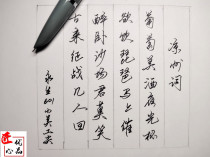 凉州词
葡萄美酒夜光杯
欲饮琵琶马上催
醉卧沙场君莫笑
古来征战几人回
永生601小美工尖
匠心
优品